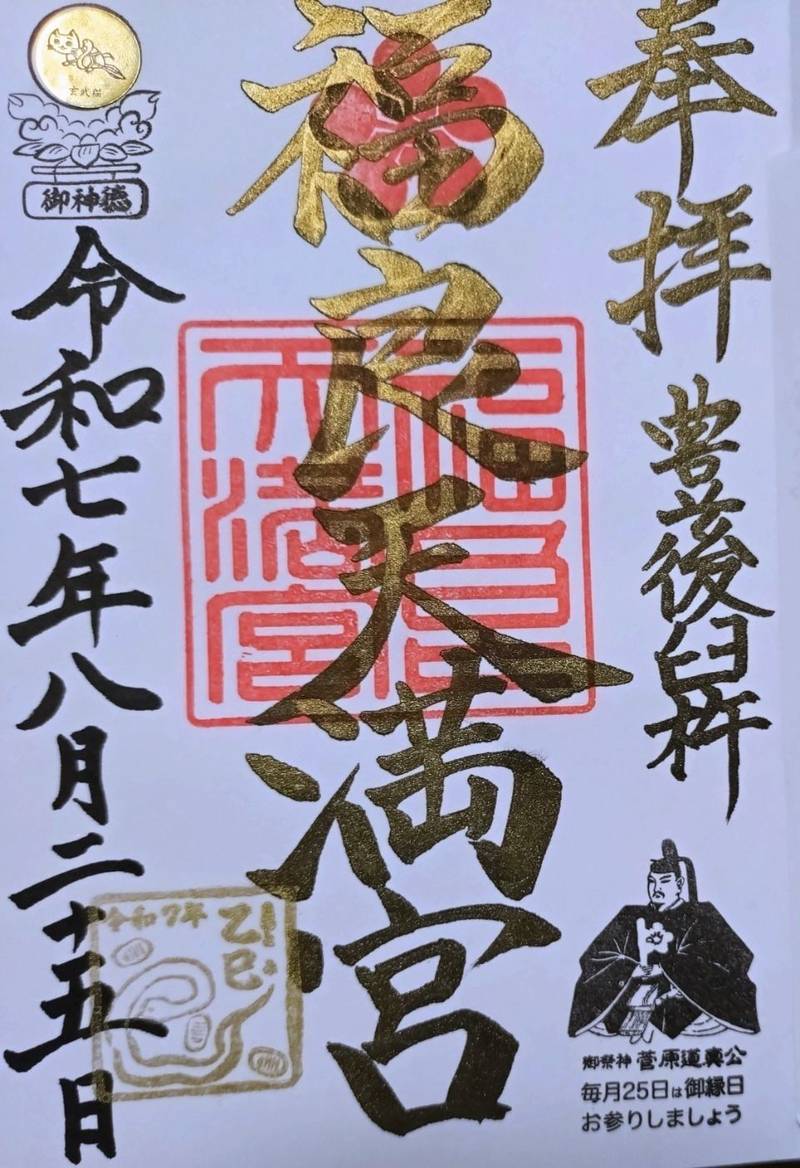 奉拝
豊後臼杵
御祭神 菅原道真公
毎月25日は御縁日
お参りしましょう
福良天満宮
福良
天満宮
玄武猫
御神徳
令和七年八月二十五日
令和7年
乙巳